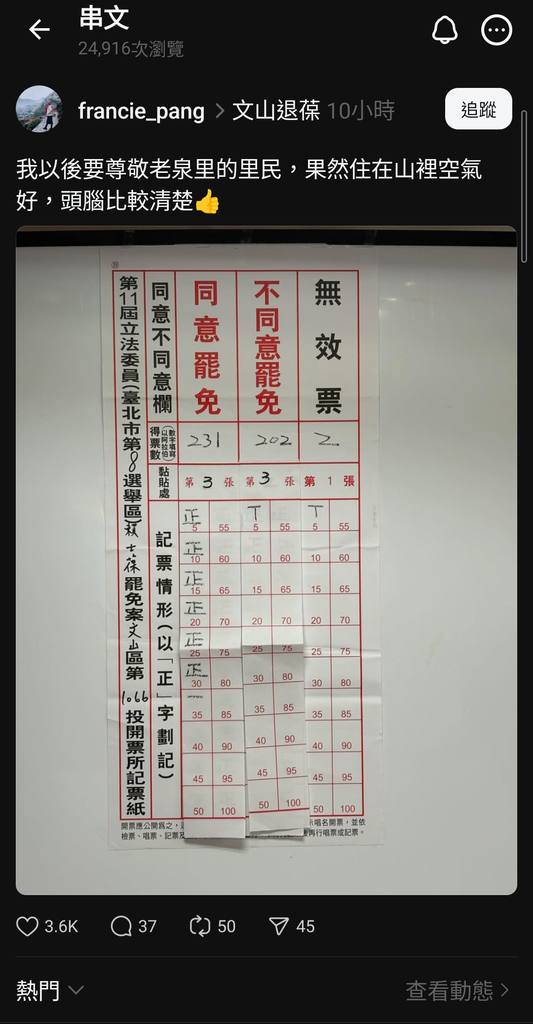 串文
24,916次瀏覽
francie_pang > 文山退葆 10小時
追蹤
我以後要尊敬老泉里的里民，果然住在山裡空氣
好，頭腦比較清楚👍
第11屆立法委員(臺北市第8選舉區)賴士葆罷免案文山區第1066投開票所記票紙
同意不同意欄
同意罷免
不同意罷免
無效票
得票數(以阿拉伯數字填寫)
231
202
2
黏貼處
第3張
第3張
第1張
記票情形(以「正」字劃記)
正 丅 丅
5 55 5 55 5 55
正
10 60 10 60 10 60
正
15 65 15 65 15 65
正
20 70 20 70 20 70
正
25 75 25 75 25 75
正
30 80 30 80 30 80
一
35 85 35 85 35 85
40 90 40 90 40 90
45 95 45 95 45 95
50 100 50 100 50 100
開票應公開為之，
示唱名開票，並依
檢票、唱票、記票
再行唱票或記票。
3.6K 37 50 45
熱門
查看動態 >